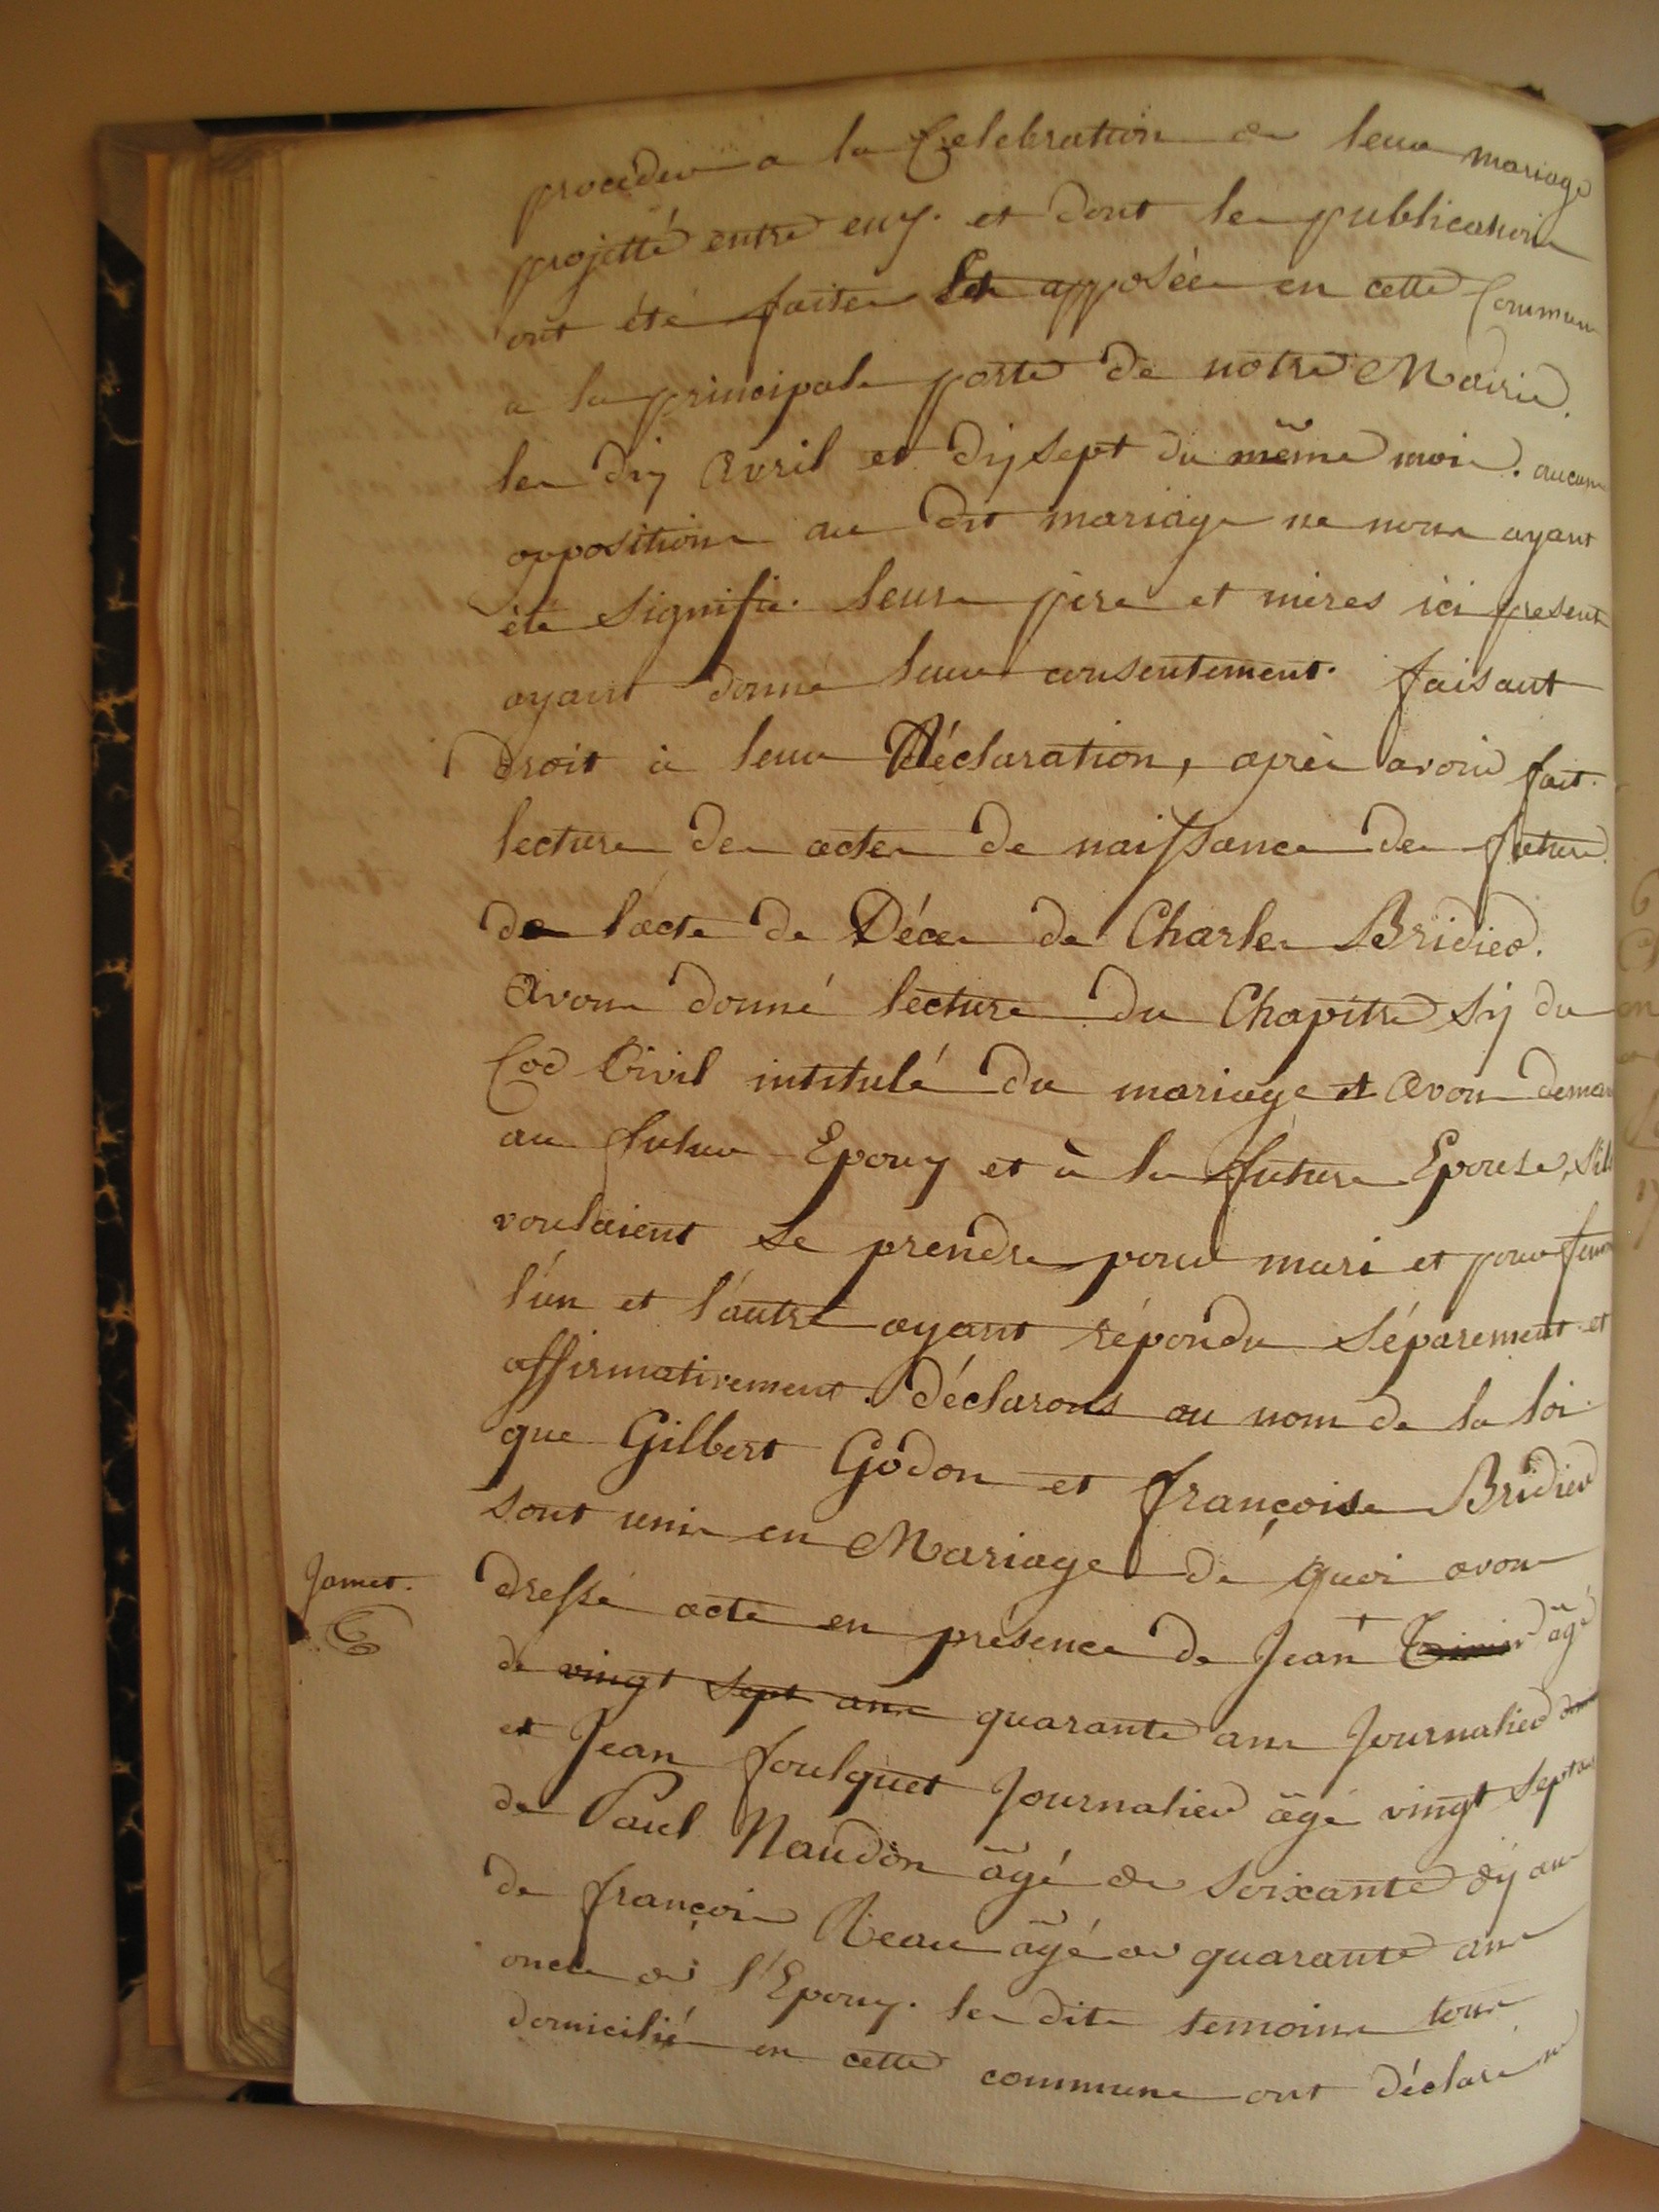 procéder a la Celebration de leur mariage
projetté entre eux. et dont les publications
ont été faites et apposées en cette Commune
a la principale porte de notre Mairie.
les dix avril et dix sept du même mois. aucune
opposition au dit mariage ne nous ayant
été signifié. leurs père et mères ici present
ayant donné leur consentement. faisant
droit à leur Déclaration, après avoir fait
lecture des actes de naissance des futurs
de l'acte de Décès de Charles Bridier.
avons donné lecture du Chapitre six du
Cod Civil intitulé du mariage et avons deman
au futur Epoux et à la future Epouse, s'ils
voulaient se prendre pour mari et pour femme
l'un et l'autre ayant répondu séparement et
affirmativement. déclarons au nom de la loi
que Gilbert Godon et françoise Bridier
sont unis en Mariage de quoi avons
Jamet.
dressé acte en présence de Jean + âgé
de vingt sept ans quarante ans Journalier
et Jean foulquet Journalier âgé vingt sept ans
de Paul Naudon âgé de soixante dix ans
de françois âgé de quarante ans
oncle de l'Epoux. les dits temoins tous
domicilié en cette commune ont déclaré